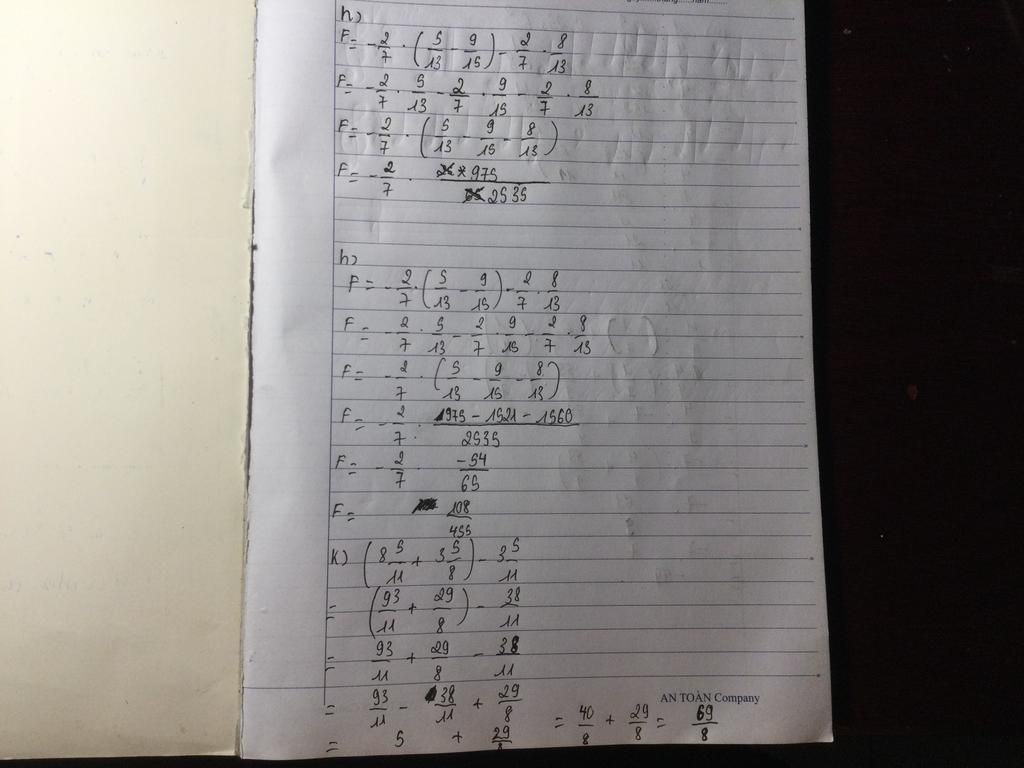 h)
F = -2/7 · (5/13 - 9/15) - 2/7 · 8/13
F = -2/7 · 5/13 - 2/7 · 9/15 - 2/7 · 8/13
F = -2/7 · (5/13 - 9/15 - 8/13)
F = -2/7 · 975/2535
h)
F = -2/7 · (5/13 - 9/15) - 2/7 · 8/13
F = -2/7 · 5/13 - 2/7 · 9/15 - 2/7 · 8/13
F = -2/7 · (5/13 - 9/15 - 8/13)
F = -2/7 · (975 - 1521 - 1560)/2535
F = -2/7 · -54/65
F = 108/455
K) (8 5/11 + 3 5/8) - 3 5/11
= (93/11 + 29/8) - 38/11
= 93/11 + 29/8 - 38/11
AN TOÀN Company
= 93/11 - 38/11 + 29/8
= 5 + 29/8 = 40/8 + 29/8 = 69/8